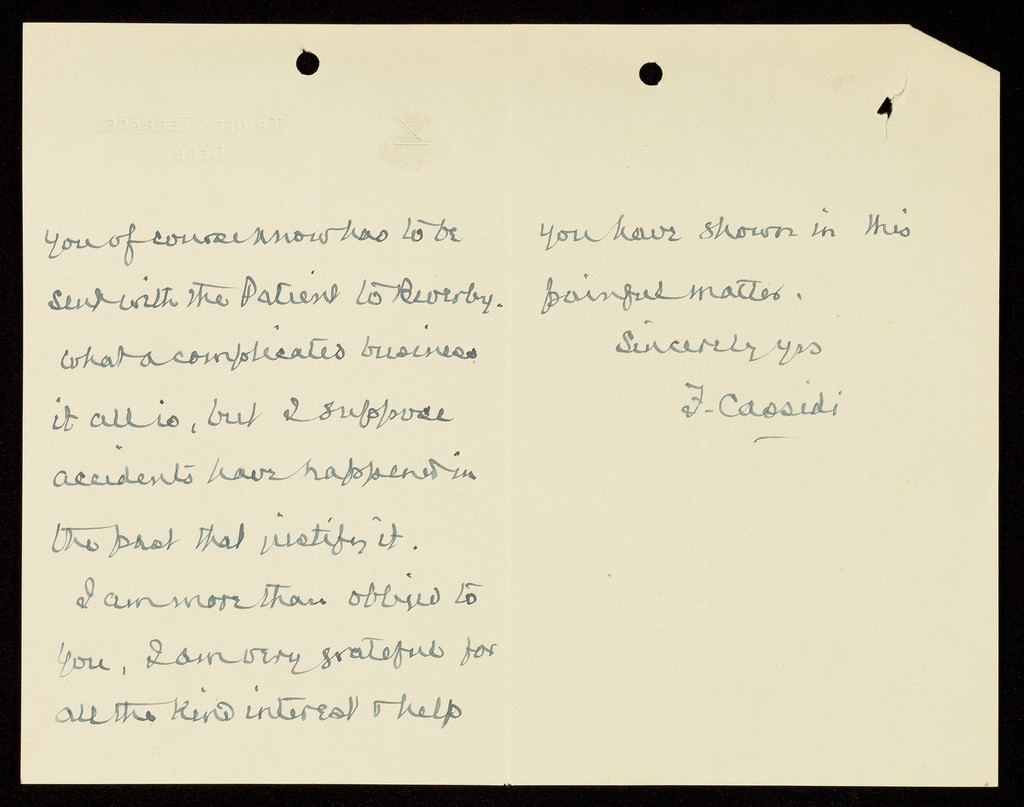 you of course know has to be
sent with the Patient to Riverby.
what a complicated business
it all is, but I suppose
accidents have happened in
the past that justify it.
I am more than obliged to
you, I am very grateful for
all the kind interest & help
you have shown in this
painful matter.
Sincerely yrs
F. Cassidi
TERRACE
DERBY